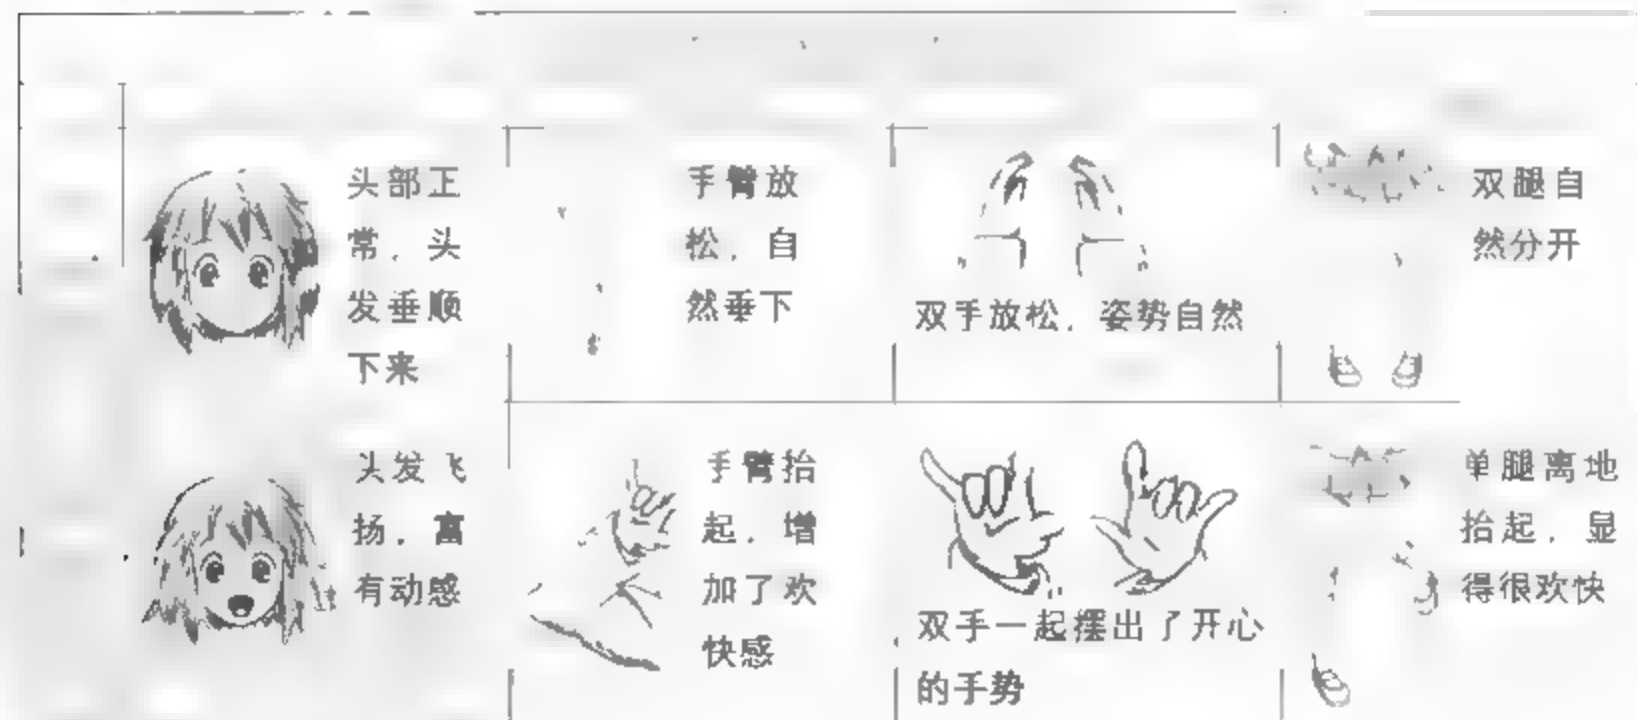 头部正
常，头
发垂顺
下来
手臂放
松，自
然垂下
双手放松，姿势自然
双腿自
然分开
头发飞
扬，富
有动感
手臂抬
起，增
加了欢
快感
双手一起摆出了开心
的手势
单腿离地
抬起，显
得很欢快